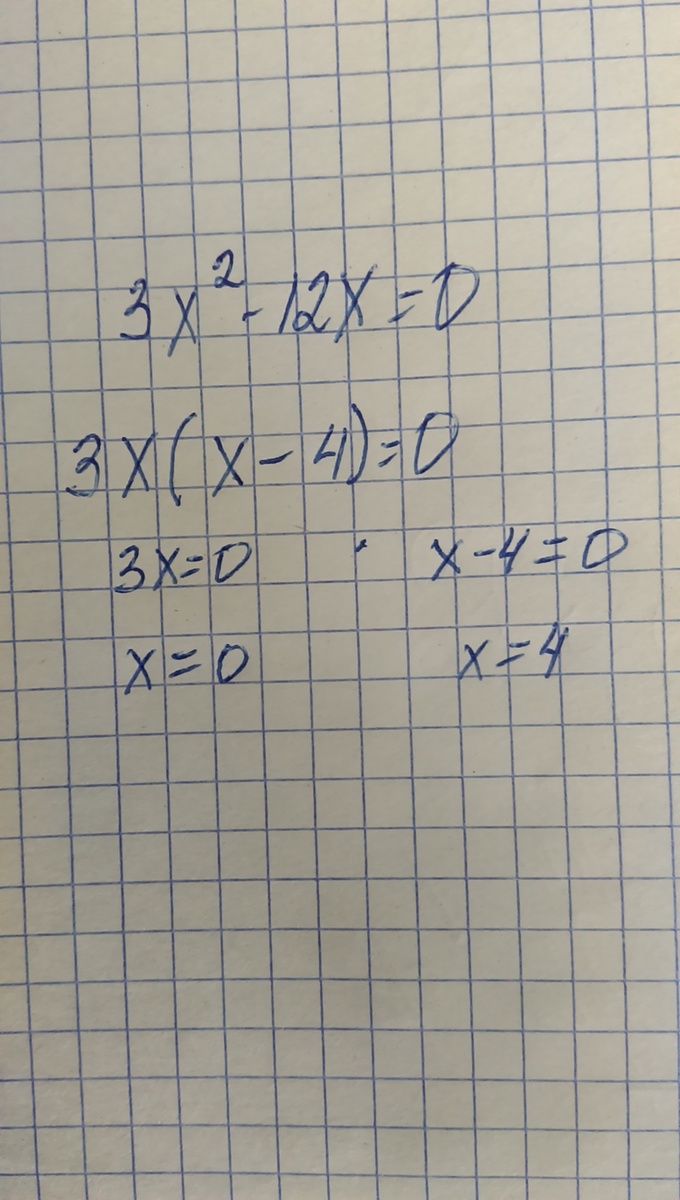 3x² - 12x = 0
3x(x - 4) = 0
3x = 0 x - 4 = 0
x = 0 x = 4